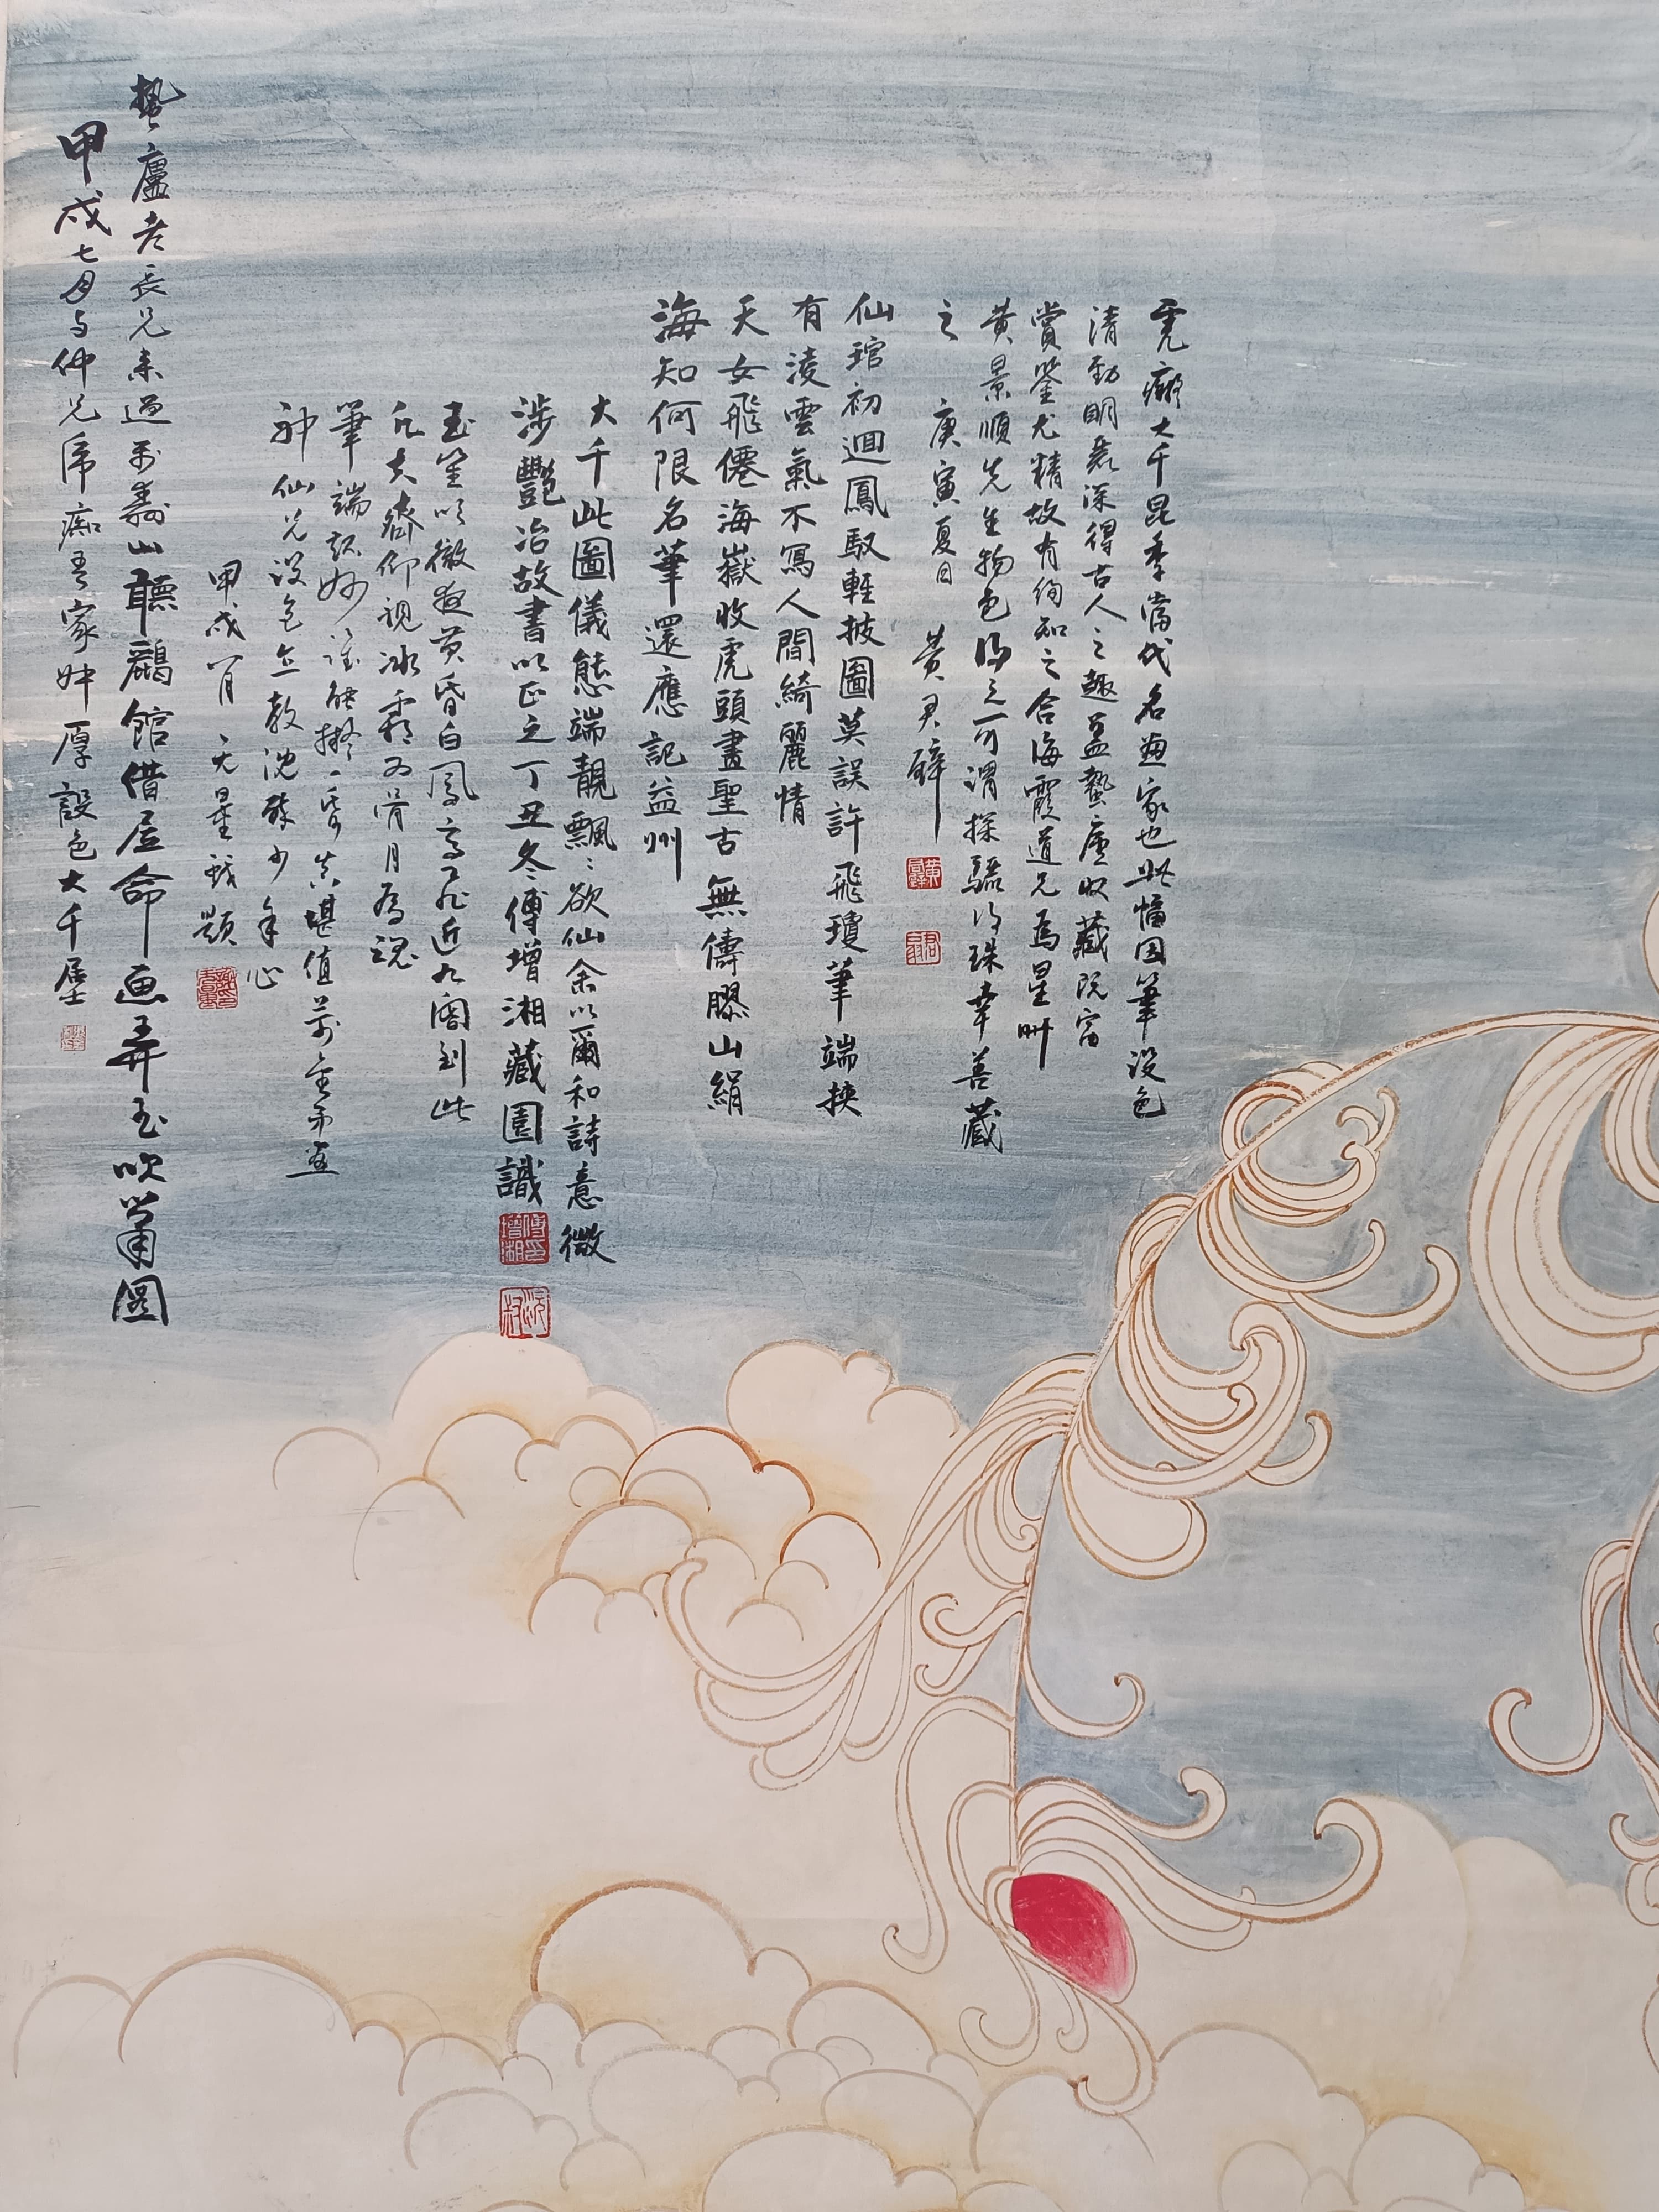 虎癡大千昆季當代名画家也此幅用筆設色
清勁明麗深得古人之趣蓋蟄廬收藏既富
賞鑒尤精故有絢知之合海霞道兄爲星洲
黃景順先生物色得之可謂探驪得珠幸善藏
之 庚寅夏日 黃君璧
仙琯初迴鳳馭輕披圖莫誤許飛瓊筆端挾
有淩雲氣不寫人間綺麗情
天女飛僊海嶽收虎頭畫聖古無儔膠山絹
海知何限名筆還應記益州
大千此圖儀態端靚飄〻欲仙余以爾和詩意微
涉豔冶故書以正之丁丑冬傅增湘藏園識
傅增湘印
沅叔
玉笙吹徹夜黃昏白鳳高飛近九閽到此
凡夫齊仰視冰霜爲骨月爲魂
筆端訣妙誰能擬一香真堪值萬金不画
神仙只設色應教沈醉少年心
甲戌 月 无量 題
蟄廬老長兄来過萬壽山聽鸝館借居命画弄玉吹簫圖
甲戌七月与仲兄虎癡吾家姊厚設色大千居士